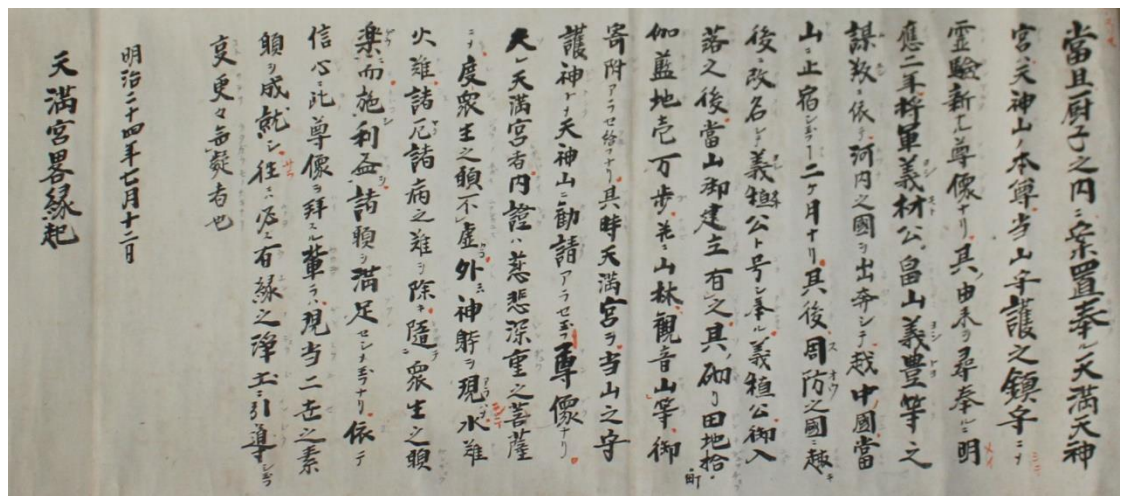 當且厨子之内ニ案置奉ル天満天神
宮天神山ノ本尊当山守護之鎮守ニテ
霊驗新ナル尊像ナリ其由来ヲ尋奉ルニ明
應二年将軍義材公畠山義豊等之
謀叛ニ依テ河内之國ヲ出奔シテ越中國當
山ニ止宿シ玉フ一二ケ月ナリ其後周防之國ニ趣キ
後ニ改名シ義稙公ト号シ奉ル義稙公御入
落之後當山御建立有之其砌リ田地拾町
伽藍地壱万歩並ニ山林觀音山等御
寄附アラセ給フナリ其時天満宮ヲ当山之守
護神トナ天神山ニ勧請アラセ玉フ尊像ナリ
夫レ天満宮者内證ハ慈悲深重之菩薩
ニテ度衆生之願不虚外ニ神躰ヲ現水難
火難諸厄諸病之難ヲ除キ随衆生之願
楽而施利益諸願ヲ満足セシメ玉フナリ依テ
信心ニ此尊像ヲ拝スル輩ラハ現当二世之素
願ヲ成就シ往々必ス有縁之浄土ニ引導シ玉フ
更々無疑者也
明治二十四年七月十二日
天満宮畧縁起